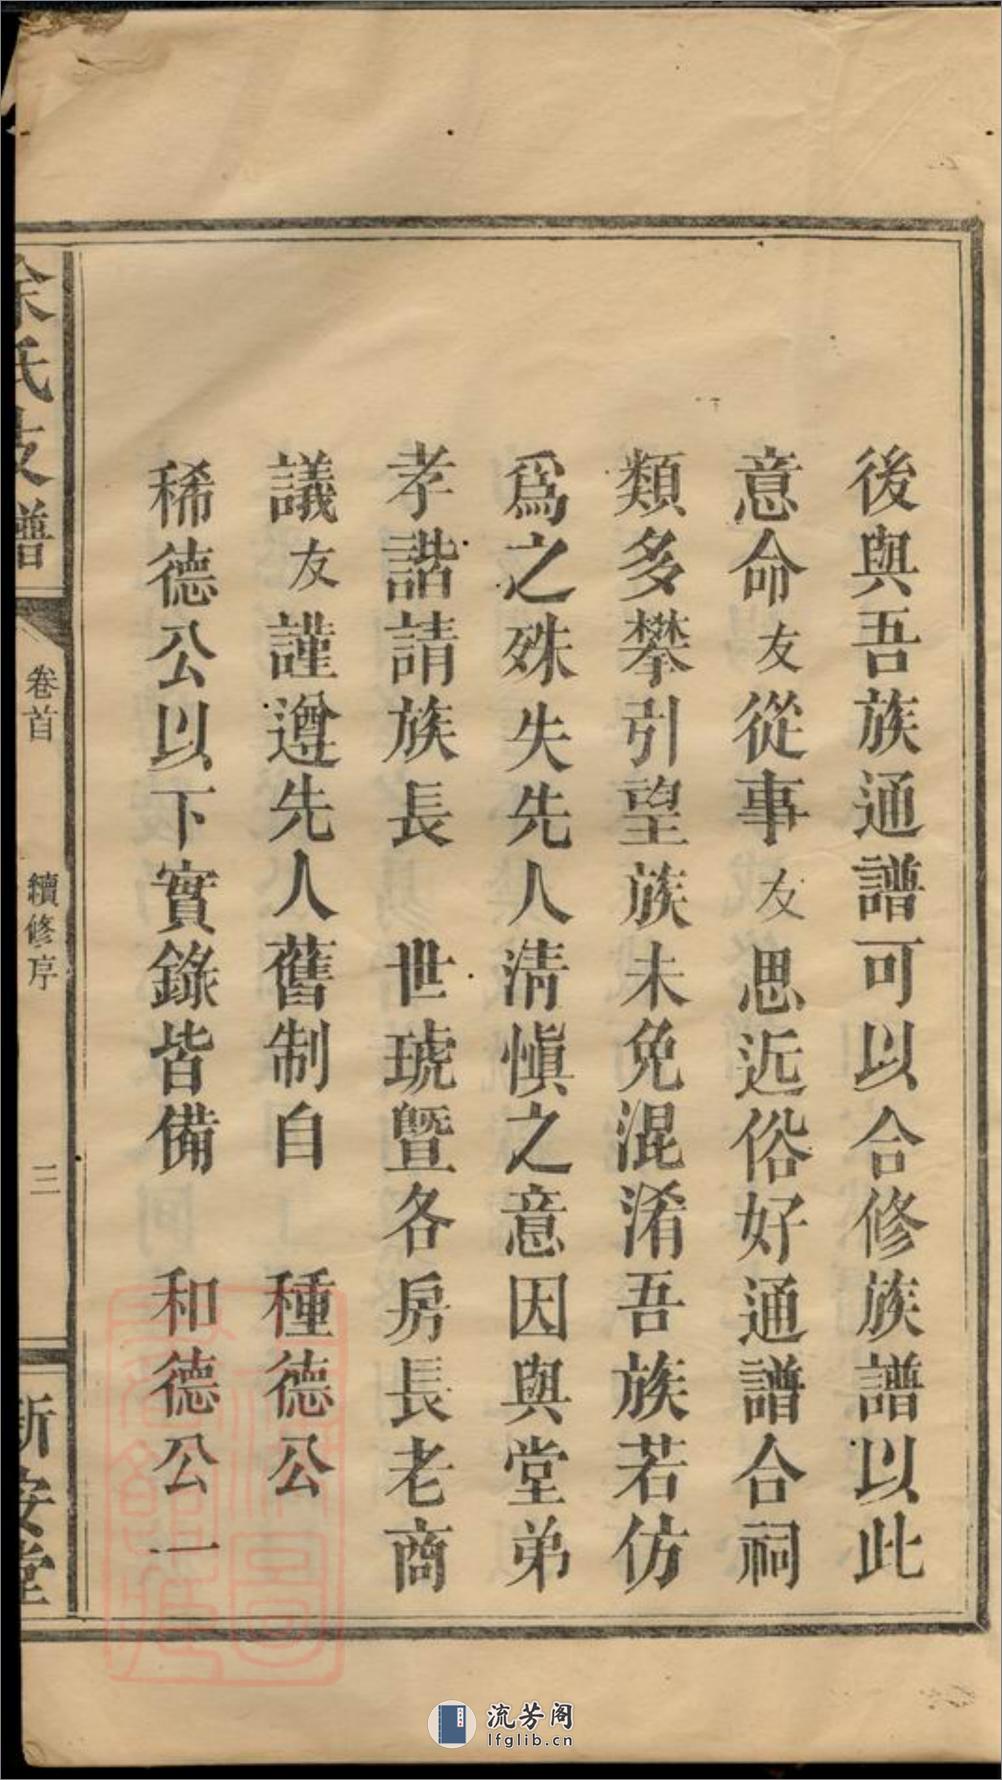 後與吾族通譜可以合修族譜以此
意命友從事友思近俗好通譜合祠
類多攀引望族未免混淆吾族若仿
爲之殊失先人清愼之意因與堂弟
孝諧請族長　世琥暨各房長老商
議友謹遵先人舊制自　種德公
稀德公以下實錄皆備　和德公一
氏支譜
卷首
續修序
三
新安堂
流芳阁
lfglib.cn